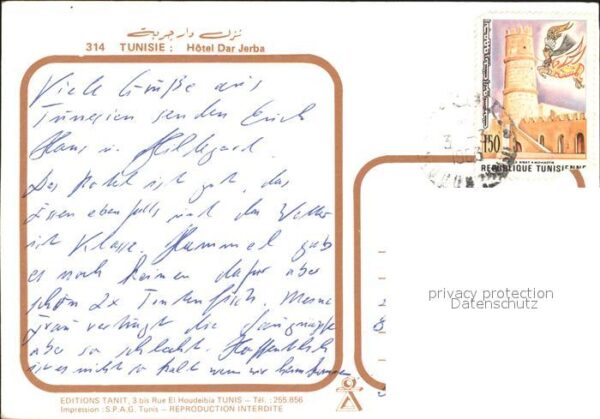 نزل دار جربة
314 TUNISIE : Hôtel Dar Jerba
Viele Grüße aus
Tunesien senden Euch
Hans u. Hildegard.
Das Hotel ist gut, das
Essen ebenfalls und das Wetter
ist Klasse. Hummel gab
es noch keinen dafür aber
schon 2x Tintenfisch. Meine
Frau verträgt die
aber so schlecht. Hoffentlich
ist es nicht so kalt wenn wir heimkommen
150
REPUBLIQUE TUNISIENNE
privacy protection
Datenschutz
EDITIONS TANIT, 3 bis Rue El Houdeibia TUNIS - Tél. : 255.856
Impression : S.P.A.G. Tunis - REPRODUCTION INTERDITE